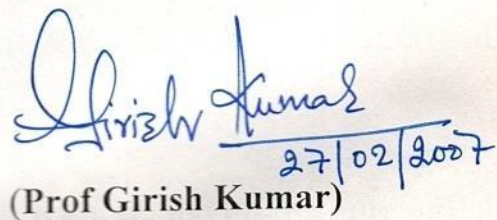 Girish Kumar
27/02/2007
(Prof Girish Kumar)